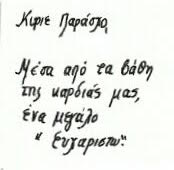 Κύριε Παράσχο,
Μέσα από τα βάθη
της καρδιάς μας,
ένα μεγάλο
“ Ευχαριστώ".